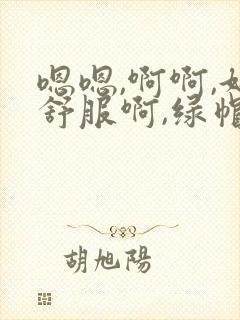 嗯嗯,啊啊,
舒服啊,绿
胡旭陽